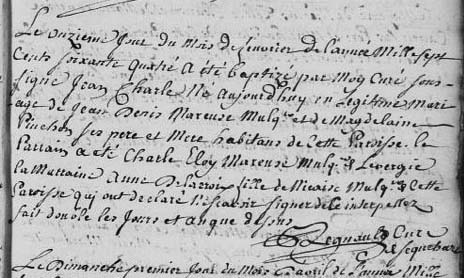 Le onzieme Jour du Mois de fevrier de l'année Mille sept
Cents soixante quatre a été baptizé par Moy Curé sous-
signé Jean Charle Né aujourdhuy en Legitime Mari-
age de Jean Denis Mareuse Mulq.r et de Magdelaine
Pinchon ses pere et Mere habitans de Cette Paroisse. le
Parrain a été Charle Eloy Mareuse Mulq.r
La Marraine Anne Delacroix fille de Nicaise Mulq.r Cette
Paroisse qui ont declaré signer de ce interpellez
fait double les Jours et an que dessus
Regnault Curé
Le Dimanche premier Jour du Mois d'avril de l'année Mille